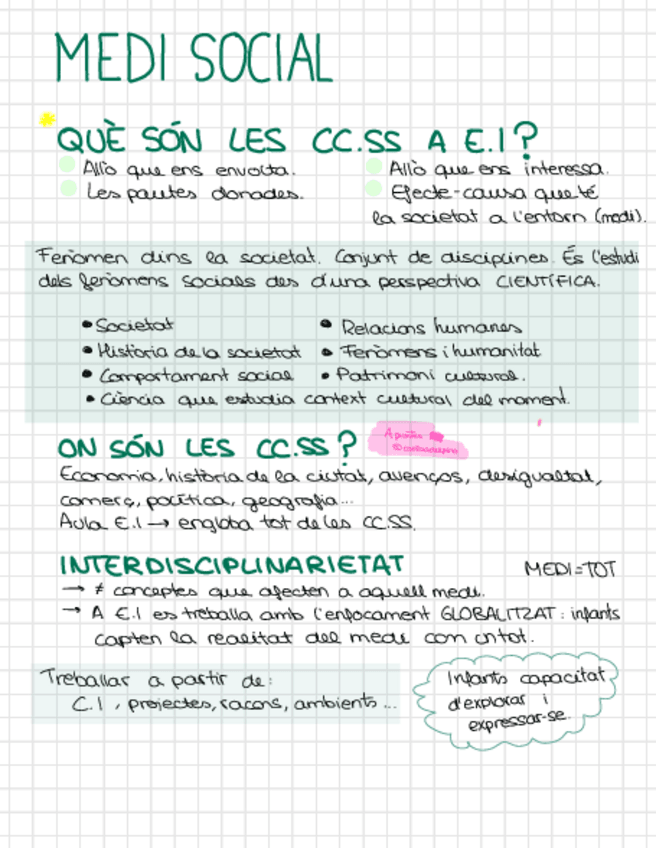 MEDI SOCIAL
QUÈ SÓN LES CC.SS A E.I?
Allò que ens envolta.
Les pautes donades.
Allò que ens interessa.
Efecte-causa que té
la societat a l'entorn (medi).
Fenòmen dins la societat. Conjunt de disciplines. És l'estudi
dels fenòmens socials des d'una perspectiva CIENTÍFICA.
• Societat
• Història de la societat
• Comportament social
• Relacions humanes
• Fenòmens i humanitat
• Patrimoni cultural.
• Ciència que estudia context cultural del moment.
ON SÓN LES CC.SS?
Apuntes
Economia, història de la ciutat, avenços, desigualtat,
comerç, política, geografia...
Aula E.I → engloba tot de les CC.SS.
INTERDISCIPLINARIETAT
MEDI=TOT
→ ≠ conceptes que afecten a aquell medi.
→ A E.I es treballa amb l'enfocament GLOBALITZAT: infants
capten la realitat del medi com un tot.
Treballar a partir de:
C.I, projectes, racons, ambients...
Infants capacitat
d'explorar i
expressar-se.